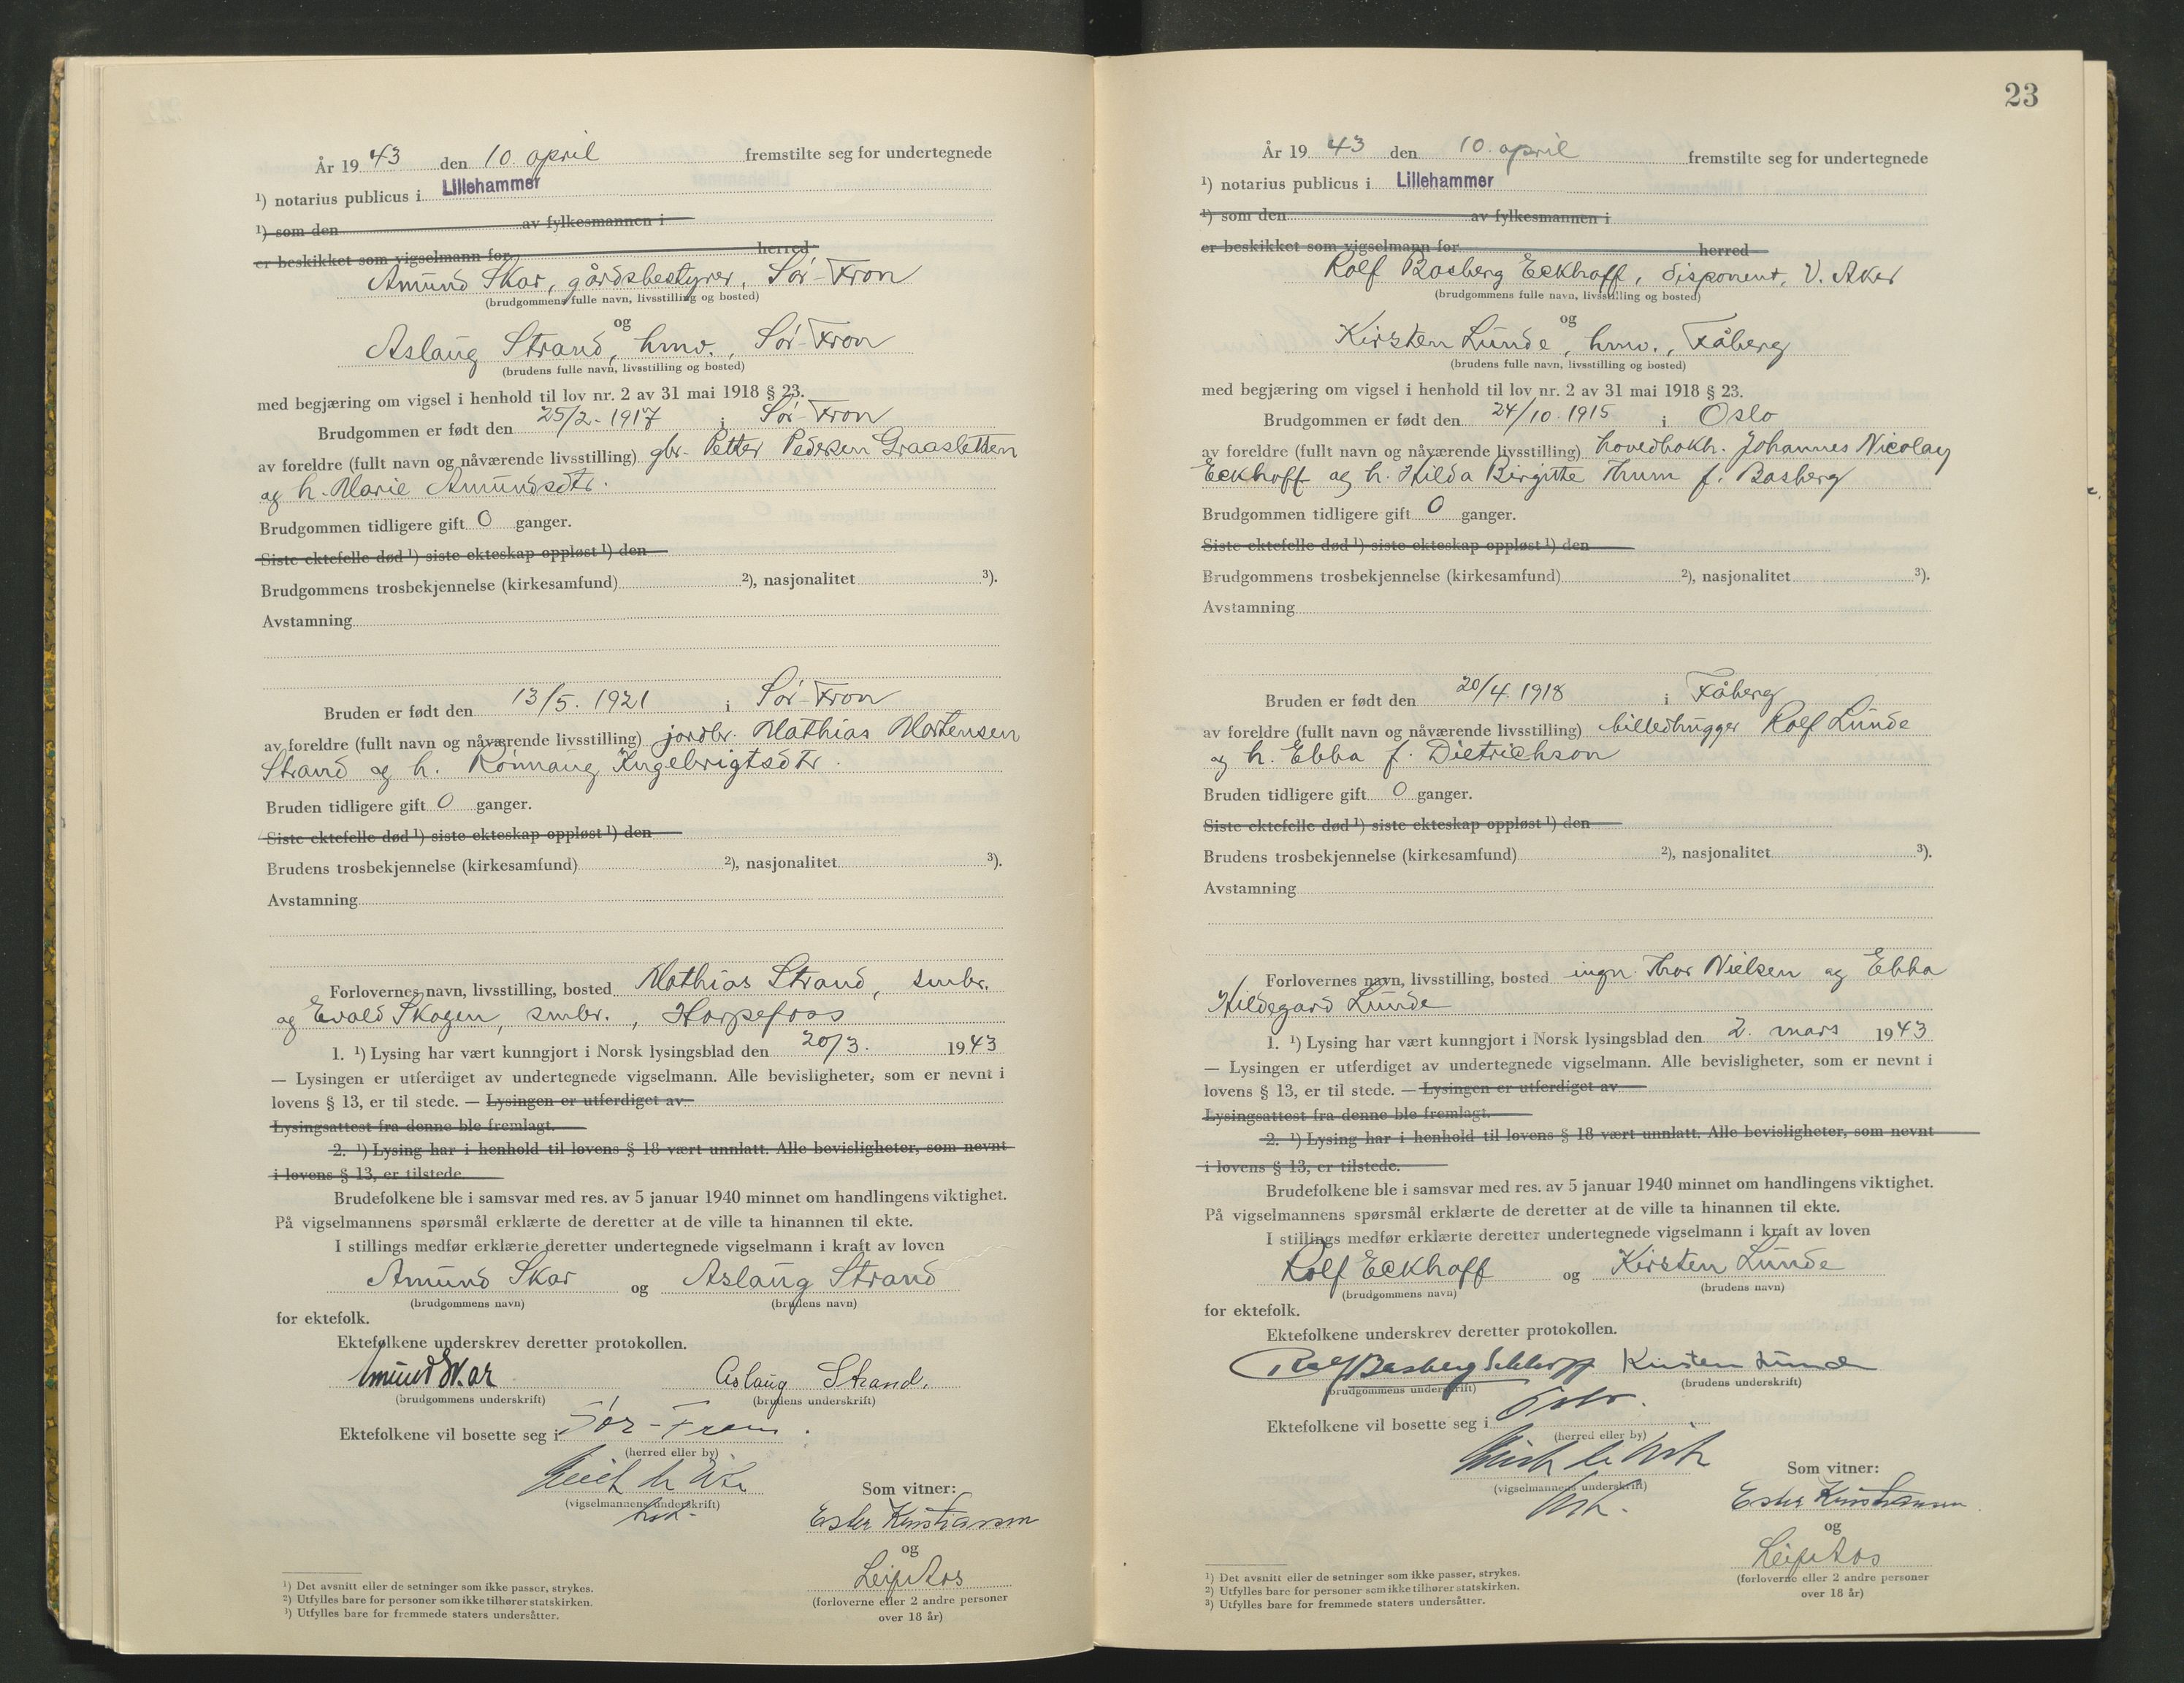 År 19 43 den 10. april fremstilte seg for undertegnede
¹) notarius publicus i Lillehammer
¹) som den av fylkesmannen i
er beskikket som vigselmann for herred
Amund Skar, gårdsbestyrer, Sør-Fron
(brudgommens fulle navn, livsstilling og bosted)
og
Aslaug Strand, hmv., Sør-Fron
(brudens fulle navn, livsstilling og bosted)
med begjæring om vigsel i henhold til lov nr. 2 av 31 mai 1918 § 23.
Brudgommen er født den 25/2-1917 i Sør-Fron
av foreldre (fullt navn og nåværende livsstilling) gbr. Petter Pedersen Graasletten
og h. Marie Amundsdtr.
Brudgommen tidligere gift 0 ganger.
Siste ektefelle død ¹) siste ekteskap oppløst ¹) den
Brudgommens trosbekjennelse (kirkesamfund) ²), nasjonalitet ³).
Avstamning
Bruden er født den 13/5. 1921 i Sør-Fron
av foreldre (fullt navn og nåværende livsstilling) jordbr. Mathias Mortensen
Strand og h. Rønnaug Ingebrigtsdtr.
Bruden tidligere gift 0 ganger.
Siste ektefelle død ¹) siste ekteskap oppløst ¹) den
Brudens trosbekjennelse (kirkesamfund) ²), nasjonalitet ³).
Avstamning
Forlovernes navn, livsstilling, bosted Mathias Strand, smbr.
og Evald Skogen, smbr., Harpefoss
1. ¹) Lysing har vært kunngjort i Norsk lysingsblad den 20/3. 1943
— Lysingen er utferdiget av undertegnede vigselmann. Alle bevisligheter, som er nevnt i
lovens § 13, er til stede. — Lysingen er utferdiget av
Lysingsattest fra denne ble fremlagt.
2. ¹) Lysing har i henhold til lovens § 18 vært unnlatt. Alle bevisligheter, som nevnt
i lovens § 13, er tilstede.
Brudefolkene ble i samsvar med res. av 5 januar 1940 minnet om handlingens viktighet.
På vigselmannens spørsmål erklærte de deretter at de ville ta hinannen til ekte.
I stillings medfør erklærte deretter undertegnede vigselmann i kraft av loven
Amund Skar og Aslaug Strand
(brudgommens navn) (brudens navn)
for ektefolk.
Ektefolkene underskrev deretter protokollen.
Amund Skar Aslaug Strand.
(brudgommens underskrift) (brudens underskrift)
Ektefolkene vil bosette seg i Sør-Fron.
(herred eller by)
(vigselmannens underskrift)
Som vitner:
Ester Kristiansen
og
Leif Aos
(forloverne eller 2 andre personer
over 18 år)
¹) Det avsnitt eller de setninger som ikke passer, strykes.
²) Utfylles bare for personer som ikke tilhører statskirken.
³) Utfylles bare for fremmede staters undersåtter.
23
År 19 43 den 10. april fremstilte seg for undertegnede
¹) notarius publicus i Lillehammer
¹) som den av fylkesmannen i
er beskikket som vigselmann for herred
Rolf Basberg Eckhoff, disponent, V. Aker
(brudgommens fulle navn, livsstilling og bosted)
og
Kirsten Lunde, hmv., Fåberg
(brudens fulle navn, livsstilling og bosted)
med begjæring om vigsel i henhold til lov nr. 2 av 31 mai 1918 § 23.
Brudgommen er født den 24/10. 1915 i Oslo
av foreldre (fullt navn og nåværende livsstilling) hovedbokh. Johannes Nicolay
Eckhoff og h. Hilda Birgitte Thum f. Basberg
Brudgommen tidligere gift 0 ganger.
Siste ektefelle død ¹) siste ekteskap oppløst ¹) den
Brudgommens trosbekjennelse (kirkesamfund) ²), nasjonalitet ³).
Avstamning
Bruden er født den 20/4. 1918 i Fåberg
av foreldre (fullt navn og nåværende livsstilling) billedhugger Rolf Lunde
og h. Ebba f. Dietrichson
Bruden tidligere gift 0 ganger.
Siste ektefelle død ¹) siste ekteskap oppløst ¹) den
Brudens trosbekjennelse (kirkesamfund) ²), nasjonalitet ³).
Avstamning
Forlovernes navn, livsstilling, bosted ingn. Thor Nielsen og Ebba
Hildegard Lunde
1. ¹) Lysing har vært kunngjort i Norsk lysingsblad den 2. mars 1943
— Lysingen er utferdiget av undertegnede vigselmann. Alle bevisligheter, som er nevnt i
lovens § 13, er til stede. — Lysingen er utferdiget av
Lysingsattest fra denne ble fremlagt.
2. ¹) Lysing har i henhold til lovens § 18 vært unnlatt. Alle bevisligheter, som nevnt
i lovens § 13, er tilstede.
Brudefolkene ble i samsvar med res. av 5 januar 1940 minnet om handlingens viktighet.
På vigselmannens spørsmål erklærte de deretter at de ville ta hinannen til ekte.
I stillings medfør erklærte deretter undertegnede vigselmann i kraft av loven
Rolf Eckhoff og Kirsten Lunde
(brudgommens navn) (brudens navn)
for ektefolk.
Ektefolkene underskrev deretter protokollen.
Rolf Basberg Eckhoff Kirsten Lunde
(brudgommens underskrift) (brudens underskrift)
Ektefolkene vil bosette seg i Oslo.
(herred eller by)
(vigselmannens underskrift)
Som vitner:
Ester Kristiansen
og
Leif Aos
(forloverne eller 2 andre personer
over 18 år)
¹) Det avsnitt eller de setninger som ikke passer, strykes.
²) Utfylles bare for personer som ikke tilhører statskirken.
³) Utfylles bare for fremmede staters undersåtter.